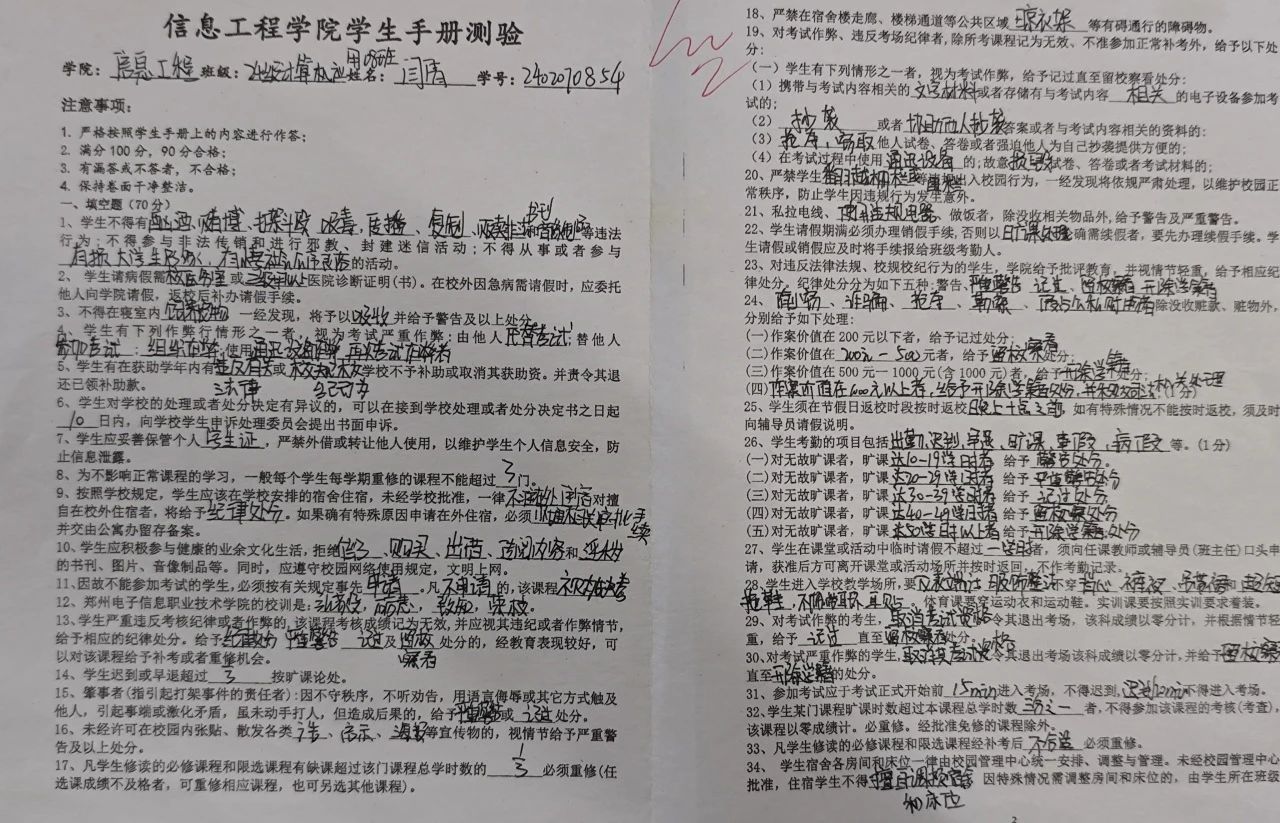 信息工程学院学生手册测验
学院：信息工程 班级：姓名：闫清 学号：2402070854
注意事项：
1. 严格按照学生手册上的内容进行作答；
2. 满分100分，90分合格；
3. 有漏答或不答者，不合格；
4. 保持卷面干净整洁。
一、填空题（70分）
1、学生不得有酗酒，赌博，打架斗殴，吸毒，复制，等违法
行为；不得参与非法传销和进行邪教、封建迷信活动；不得从事或者参与
有损大学生形象，有悖社会公序良俗的活动。
2、 学生请病假需或医院诊断证明(书)。在校外因急病需请假时，应委托
他人向学院请假，返校后补办请假手续。
3、不得在寝室内饲养宠物 一经发现，将予以没收并给予警告及以上处分。
4、学生有下列作弊行情形之一者，视为考试严重作弊：由他人代替考试；替他人
参加考试；组织作弊；使用通讯设备作弊
5、学生有在获助学年内有违反有关或校规校纪学校不予补助或取消其获助资。并责令其退
法律
还已领补助款。
6、学生对学校的处理或者处分决定有异议的，可以在接到学校处理或者处分决定书之日起
10 日内，向学校学生申诉处理委员会提出书面申诉。
7、学生应妥善保管个人学生证，严禁外借或转让他人使用，以维护学生个人信息安全，防
止信息泄露。
8、为不影响正常课程的学习，一般每个学生每学期重修的课程不能超过3门。
9、按照学校规定，学生应该在学校安排的宿舍住宿，未经学校批准，一律不准在外住宿对擅
自在校外住宿者，将给予纪律处分。如果确有特殊原因申请在外住宿，必须手
续
并交由公寓办留存备案。
10、学生应积极参与健康的业余文化生活，拒绝、购买、出借、传阅内容和淫秽
的书刊、图片、音像制品等。同时，应遵守校园网络使用规定，文明上网。
11、因故不能参加考试的学生，必须按有关规定事先申请。凡不申请的，该课程
12、郑州电子信息职业技术学院的校训是：
13、学生严重违反考核纪律或者作弊的，该课程考核成绩记为无效，并应视其违纪或者作弊情节，
给予相应的纪律处分。给予严重警告 记过及留校处分的，经教育表现较好，可
察看
以对该课程给予补考或者重修机会。
14、学生迟到或早退超过 3 按旷课论处。
15、肇事者(指引起打架事件的责任者)：因不守秩序，不听劝告，用语言侮辱或其它方式触及
他人，引起事端或激化矛盾，虽未动手打人，但造成后果的，给予严重警告或记过处分。
16、未经许可在校园内张贴、散发各类广告、启示、海报等宣传物的，视情节给予严重警
告及以上处分。
17、凡学生修读的必修课程和限选课程有缺课超过该门课程总学时数的 1/3 必须重修(任
选课成绩不及格者，可重修相应课程，也可另选其他课程)。
18、严禁在宿舍楼走廊、楼梯通道等公共区域晾衣架等有碍通行的障碍物。
19、对考试作弊、违反考场纪律者，除所考课程记为无效、不准参加正常补考外，给予以下处
分：
(一)学生有下列情形之一者，视为考试作弊，给予记过直至留校察看处分：
(1)携带与考试内容相关的文字材料或者存储有与考试内容 相关 的电子设备参加考
试的；
(2) 抄袭 或者协助他人抄袭答案或者与考试内容相关的资料的；
(3)抢夺、窃取他人试卷、答卷或者强迫他人为自己抄袭提供方便的；
(4)在考试过程中使用通讯设备的；故意损毁试卷、答卷或者考试材料的；
20、严禁学生等违规出入校园行为，一经发现将依规严肃处理，以维护校园正
常秩序，防止学生因违规行为发生意外。
21、私拉电线、使用违规电器、做饭者，除没收相关物品外，给予警告及严重警告。
22、学生请假期满必须办理销假手续，否则以旷课处理确需续假者，要先办理续假手续。学
生请假或销假应及时将手续报给班级考勤人。
23、对违反法律法规、校规校纪行为的学生，学院给予批评教育，并视情节轻重，给予相应纪
律处分。纪律处分分为如下五种：警告、严重警告 记过、留校察看 开除学籍
24、 诈骗、抢夺、勒索、除没收赃款、赃物外，
分别给予如下处理：
(一)作案价值在200元以下者，给予记过处分；
(二)作案价值在200元－500元者，给予留校察看处分；
(三)作案价值在500元一1000元(含1000元)者，给予开除学籍处分；
(四)作案价值在1000元以上者，给予开除学籍处分，(1分)
25、学生须在节假日返校时段按时返校晚上十点之前，如有特殊情况不能按时返校，须及时
向辅导员请假说明。
26、学生考勤的项目包括出勤，迟到，早退、旷课、事假、病假等。(1分)
(一)对无故旷课者，旷课达10-19学时者 给予 警告处分。
(二)对无故旷课者，旷课达20-29学时者 给予 严重警告处分
(三)对无故旷课者，旷课达30-39学时者 给予 记过处分
(四)对无故旷课者，旷课达40-49学时者 给予 留校察看处分
(五)对无故旷课者，旷课达50学时以上者 给予 开除学籍处分
27、学生在课堂或活动中临时请假不超过一学时者，须向任课教师或辅导员(班主任)口头申
请，获准后方可离开课堂或活动场所并按时返回，不作考勤记录。
28、学生进入学校教学场所，要服饰整洁不穿背心 裤衩、吊带裙和超短
体育课要穿运动衣和运动鞋。实训课要按照实训要求着装。
29、对考试作弊的考生，取消考试资格令其退出考场，该科成绩以零分计，并根据情节轻
重，给予 记过 直至留校察看处分。
30、对考试严重作弊的学生，取消考试资格令其退出考场该科成绩以零分计，并给予留校察看
直至开除学籍的处分。
31、参加考试应于考试正式开始前 15min进入考场，不得迟到，不得进入考场。
32、学生某门课程旷课时数超过本课程总学时数 三分之一 者，不得参加该课程的考核(考查)，
该课程以零成绩计。必重修。经批准免修的课程除外。
33、凡学生修读的必修课程和限选课程经补考后 不及格 必须重修。
34、 学生宿舍各房间和床位一律由校园管理中心统一安排、调整与管理。未经校园管理中心
批准，住宿学生不得擅自调换宿舍 因特殊情况需调整房间和床位的，由学生所在班级
和床位
2